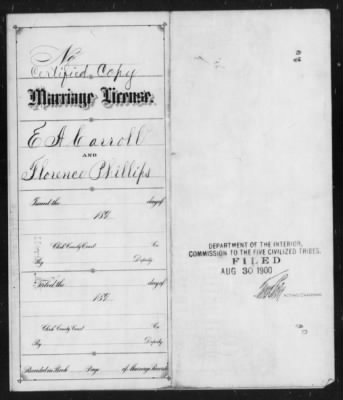 No
Certified Copy
Marriage License.
E A Carroll
AND
Florence Phillips
Issued the day of
189
Clerk County Court Co.
By Deputy.
Tested the day of
189
Clerk County Court Co.
By Deputy.
Recorded in Book Page of Marriage Records
DEPARTMENT OF THE INTERIOR,
COMMISSION TO THE FIVE CIVILIZED TRIBES.
FILED
AUG 30 1900
ACTING CHAIRMAN.